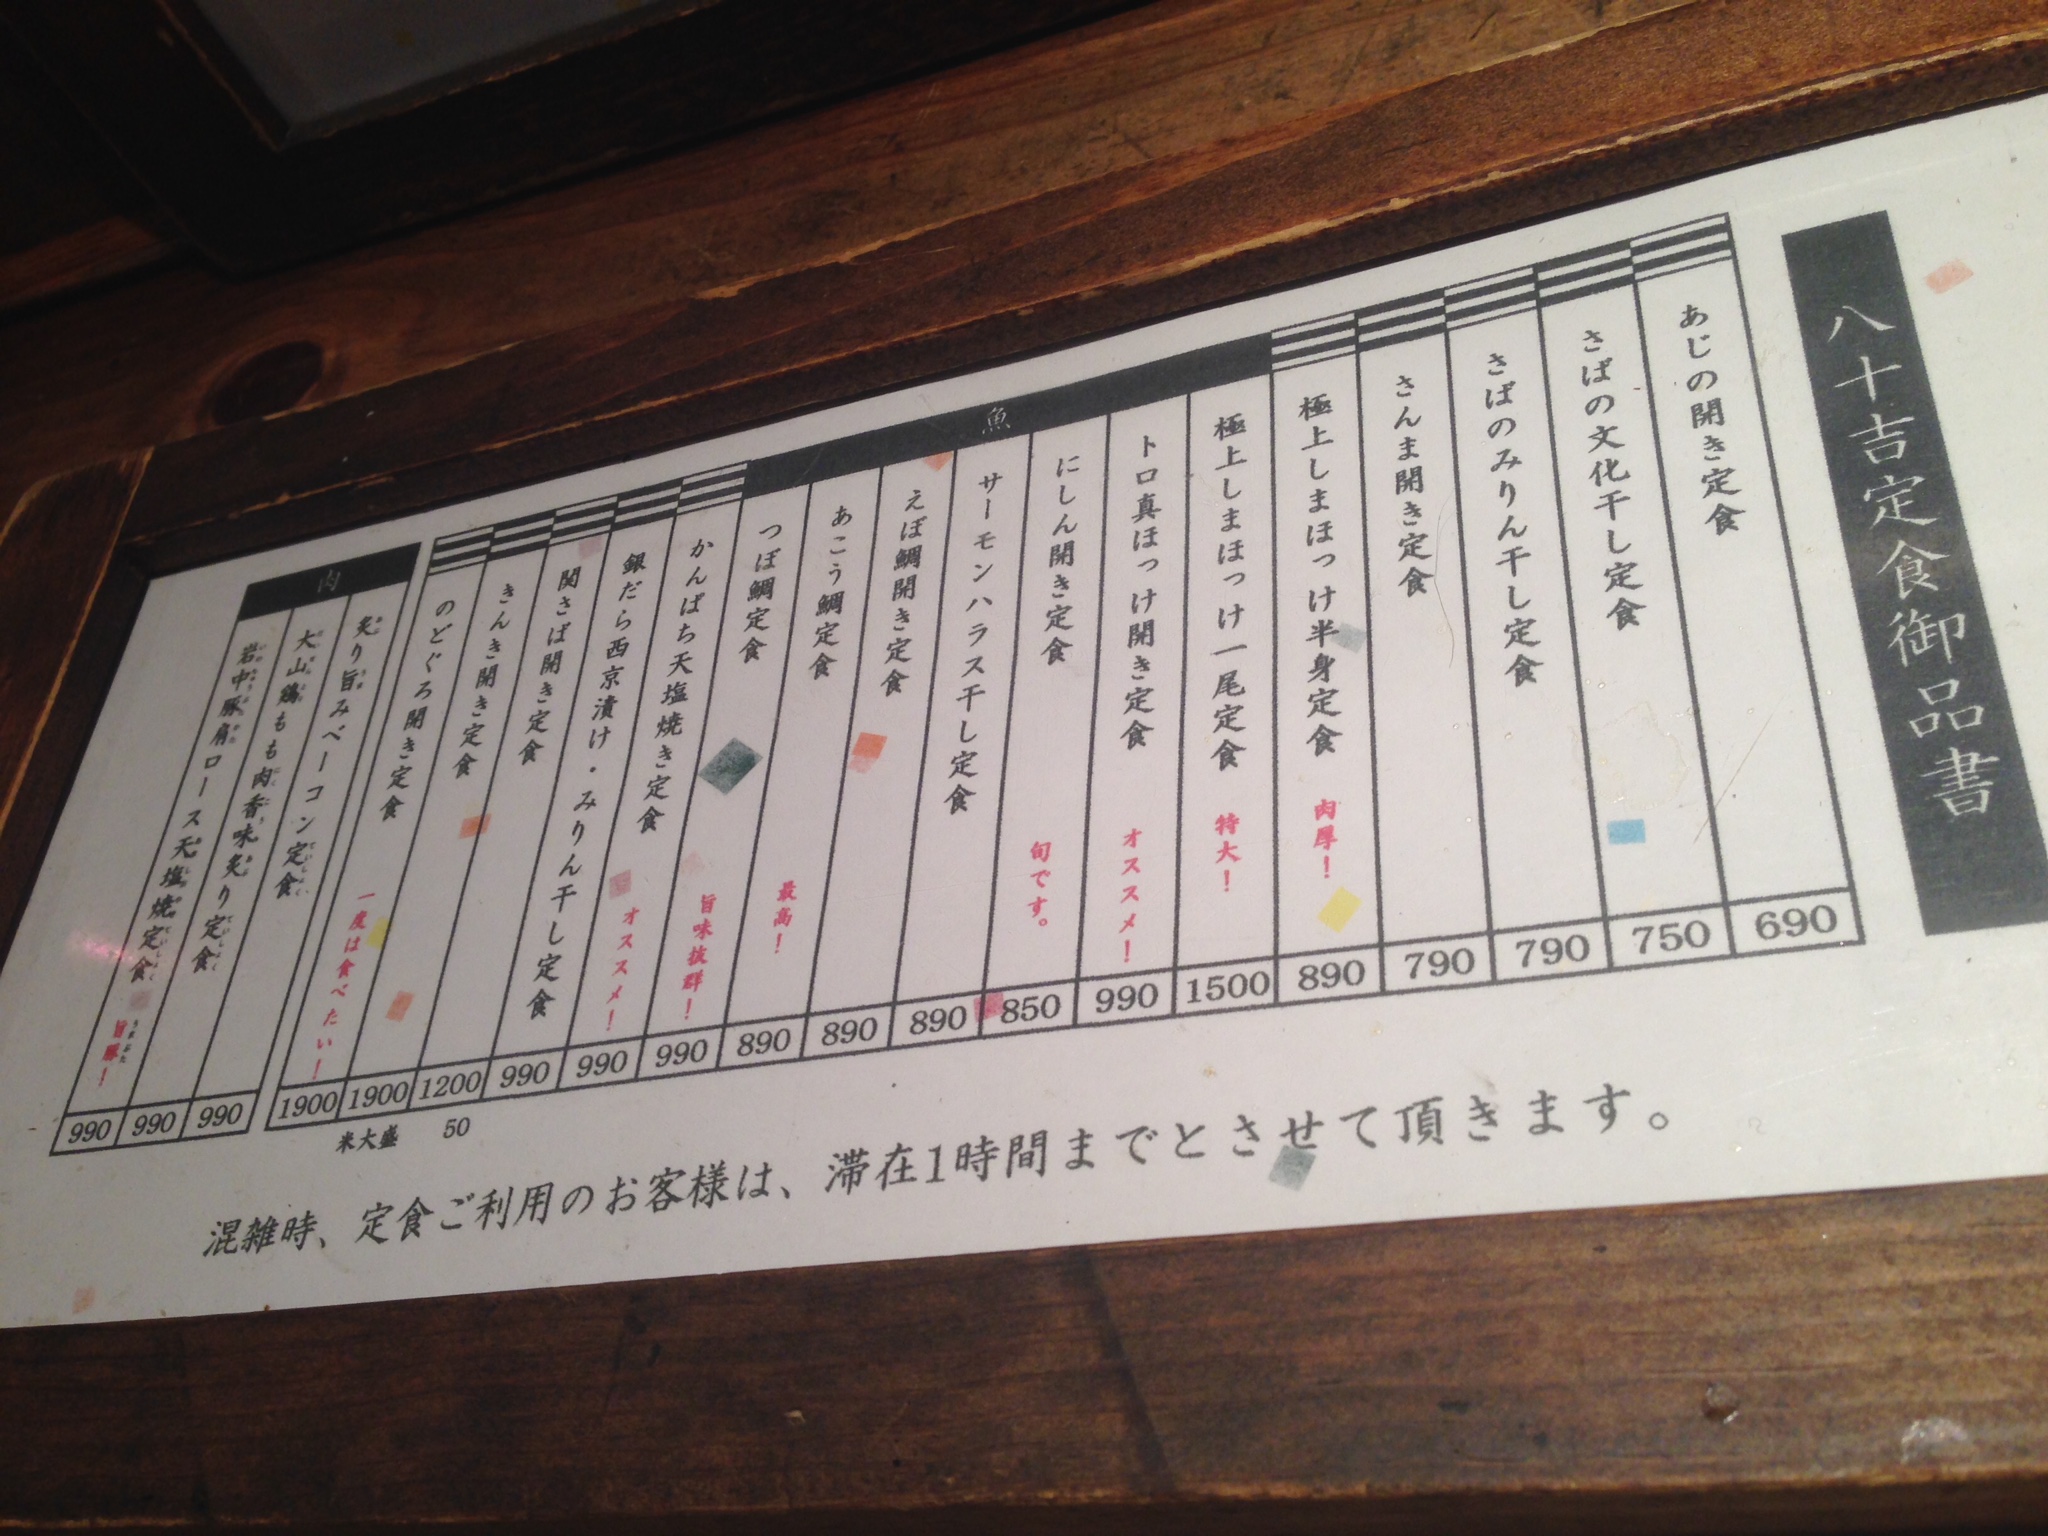 八十吉定食御品書
魚
あじの開き定食 690
さばの文化干し定食 750
さばのみりん干し定食 790
さんま開き定食 790
極上しまほっけ半身定食 肉厚！ 890
極上しまほっけ一尾定食 特大！ 1500
トロ真ほっけ開き定食 オススメ！ 990
にしん開き定食 旬です。 850
サーモンハラス干し定食 890
えぼ鯛開き定食 890
あこう鯛定食 最高！ 890
つぼ鯛定食 旨味抜群！ 990
かんぱち天塩焼き定食 オススメ！ 990
銀だら西京漬け・みりん干し定食 990
関さば開き定食 1200
きんき開き定食 1900
のどぐろ開き定食 一度は食べたい！ 1900
肉
炙り旨みベーコン定食 990
大山鶏もも肉香味炙り定食 990
岩中豚肩ロース天塩焼定食 旨豚！ 990
米大盛 50
混雑時、定食ご利用のお客様は、滞在1時間までとさせて頂きます。